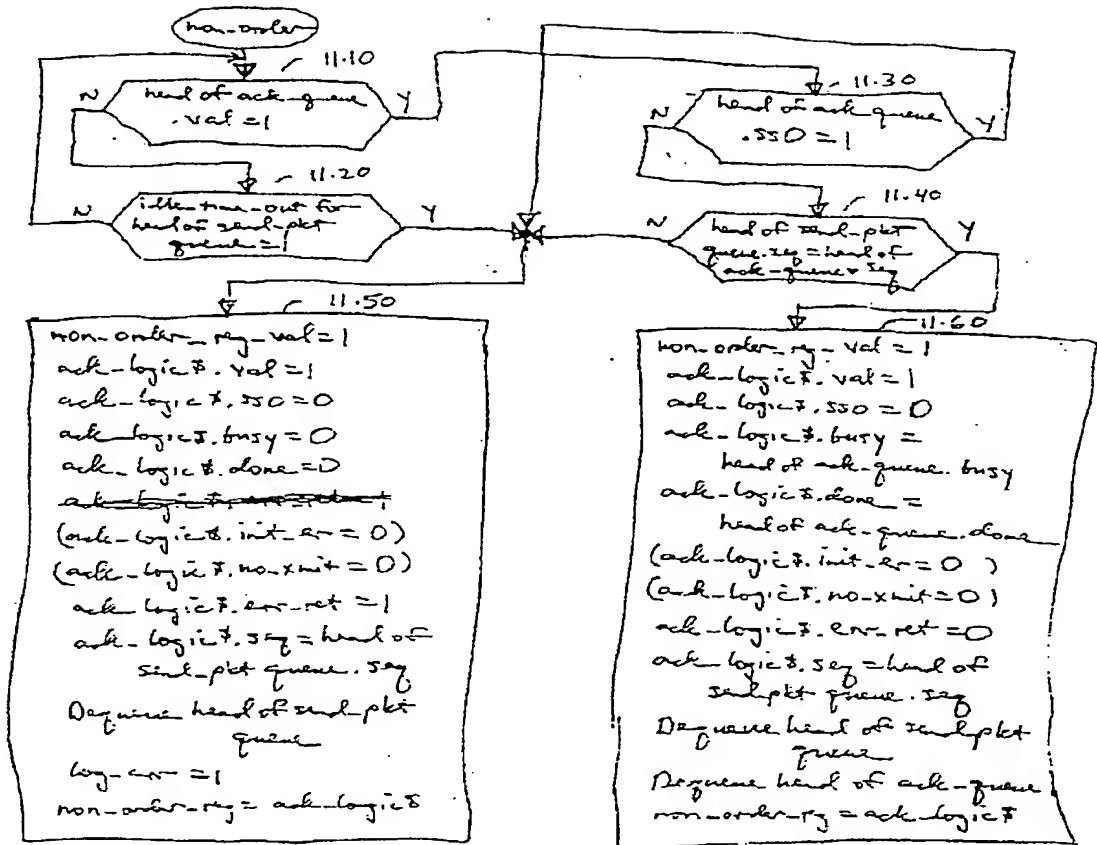 non-order
11.10
head of ack-queue
.val = 1
N
Y
11.20
idle-time-out for
head of send-pkt
queue = 1
N
Y
11.30
head of ack queue
.SSO = 1
N
Y
11.40
head of send-pkt
queue.seq = head of
ack-queue.seq
N
Y
11.50
non-order-reg-val = 1
ack-logic$.val = 1
ack-logic$.sso = 0
ack-logic$.busy = 0
ack-logic$.done = 0
(ack-logic$.init-err = 0)
(ack-logic$.no-xmit = 0)
ack logic$.err-ret = 1
ack-logic$.seq = head of
send-pkt queue.seq
Dequeue head of send-pkt
queue
log-err = 1
non-order-reg = ack-logic$
11.60
non-order-reg-val = 1
ack-logic$.val = 1
ack-logic$.sso = 0
ack-logic$.busy =
head of ack-queue.busy
ack-logic$.done =
head of ack-queue.done
(ack-logic$.init-er = 0)
(ack-logic$.no-xmit = 0)
ack-logic$.err-ret = 0
ack-logic$.seq = head of
send-pkt queue.seq
Dequeue head of send-pkt
queue
Dequeue head of ack-queue
non-order-rg = ack-logic$